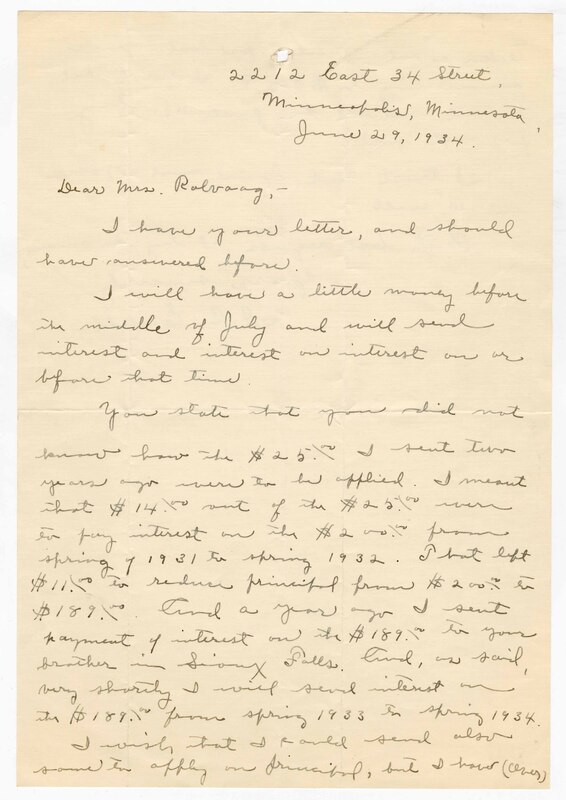 2212 East 34 Street,
Minneapolis, Minnesota,
June 29, 1934.
Dear Mrs. Rolvaag,-
I have your letter, and should
have answered before.
I will have a little money before
the middle of July and will send
interest and interest on interest on or
before that time.
You state that you did not
know how the $25.00 I sent two
years ago were to be applied. I meant
that $14.00 out of the $25.00 were
to pay interest on the $200.00 from
spring of 1931 to spring 1932. That left
$11.00 to reduce principal from $200.00 to
$189.00. And a year ago I sent
payment of interest on the $189.00 to your
brother in Sioux Falls. And, as said,
very shortly I will send interest on
the $189.00 from spring 1933 to spring 1934.
I wish that I could send also
some to apply on principal, but I have (Over)